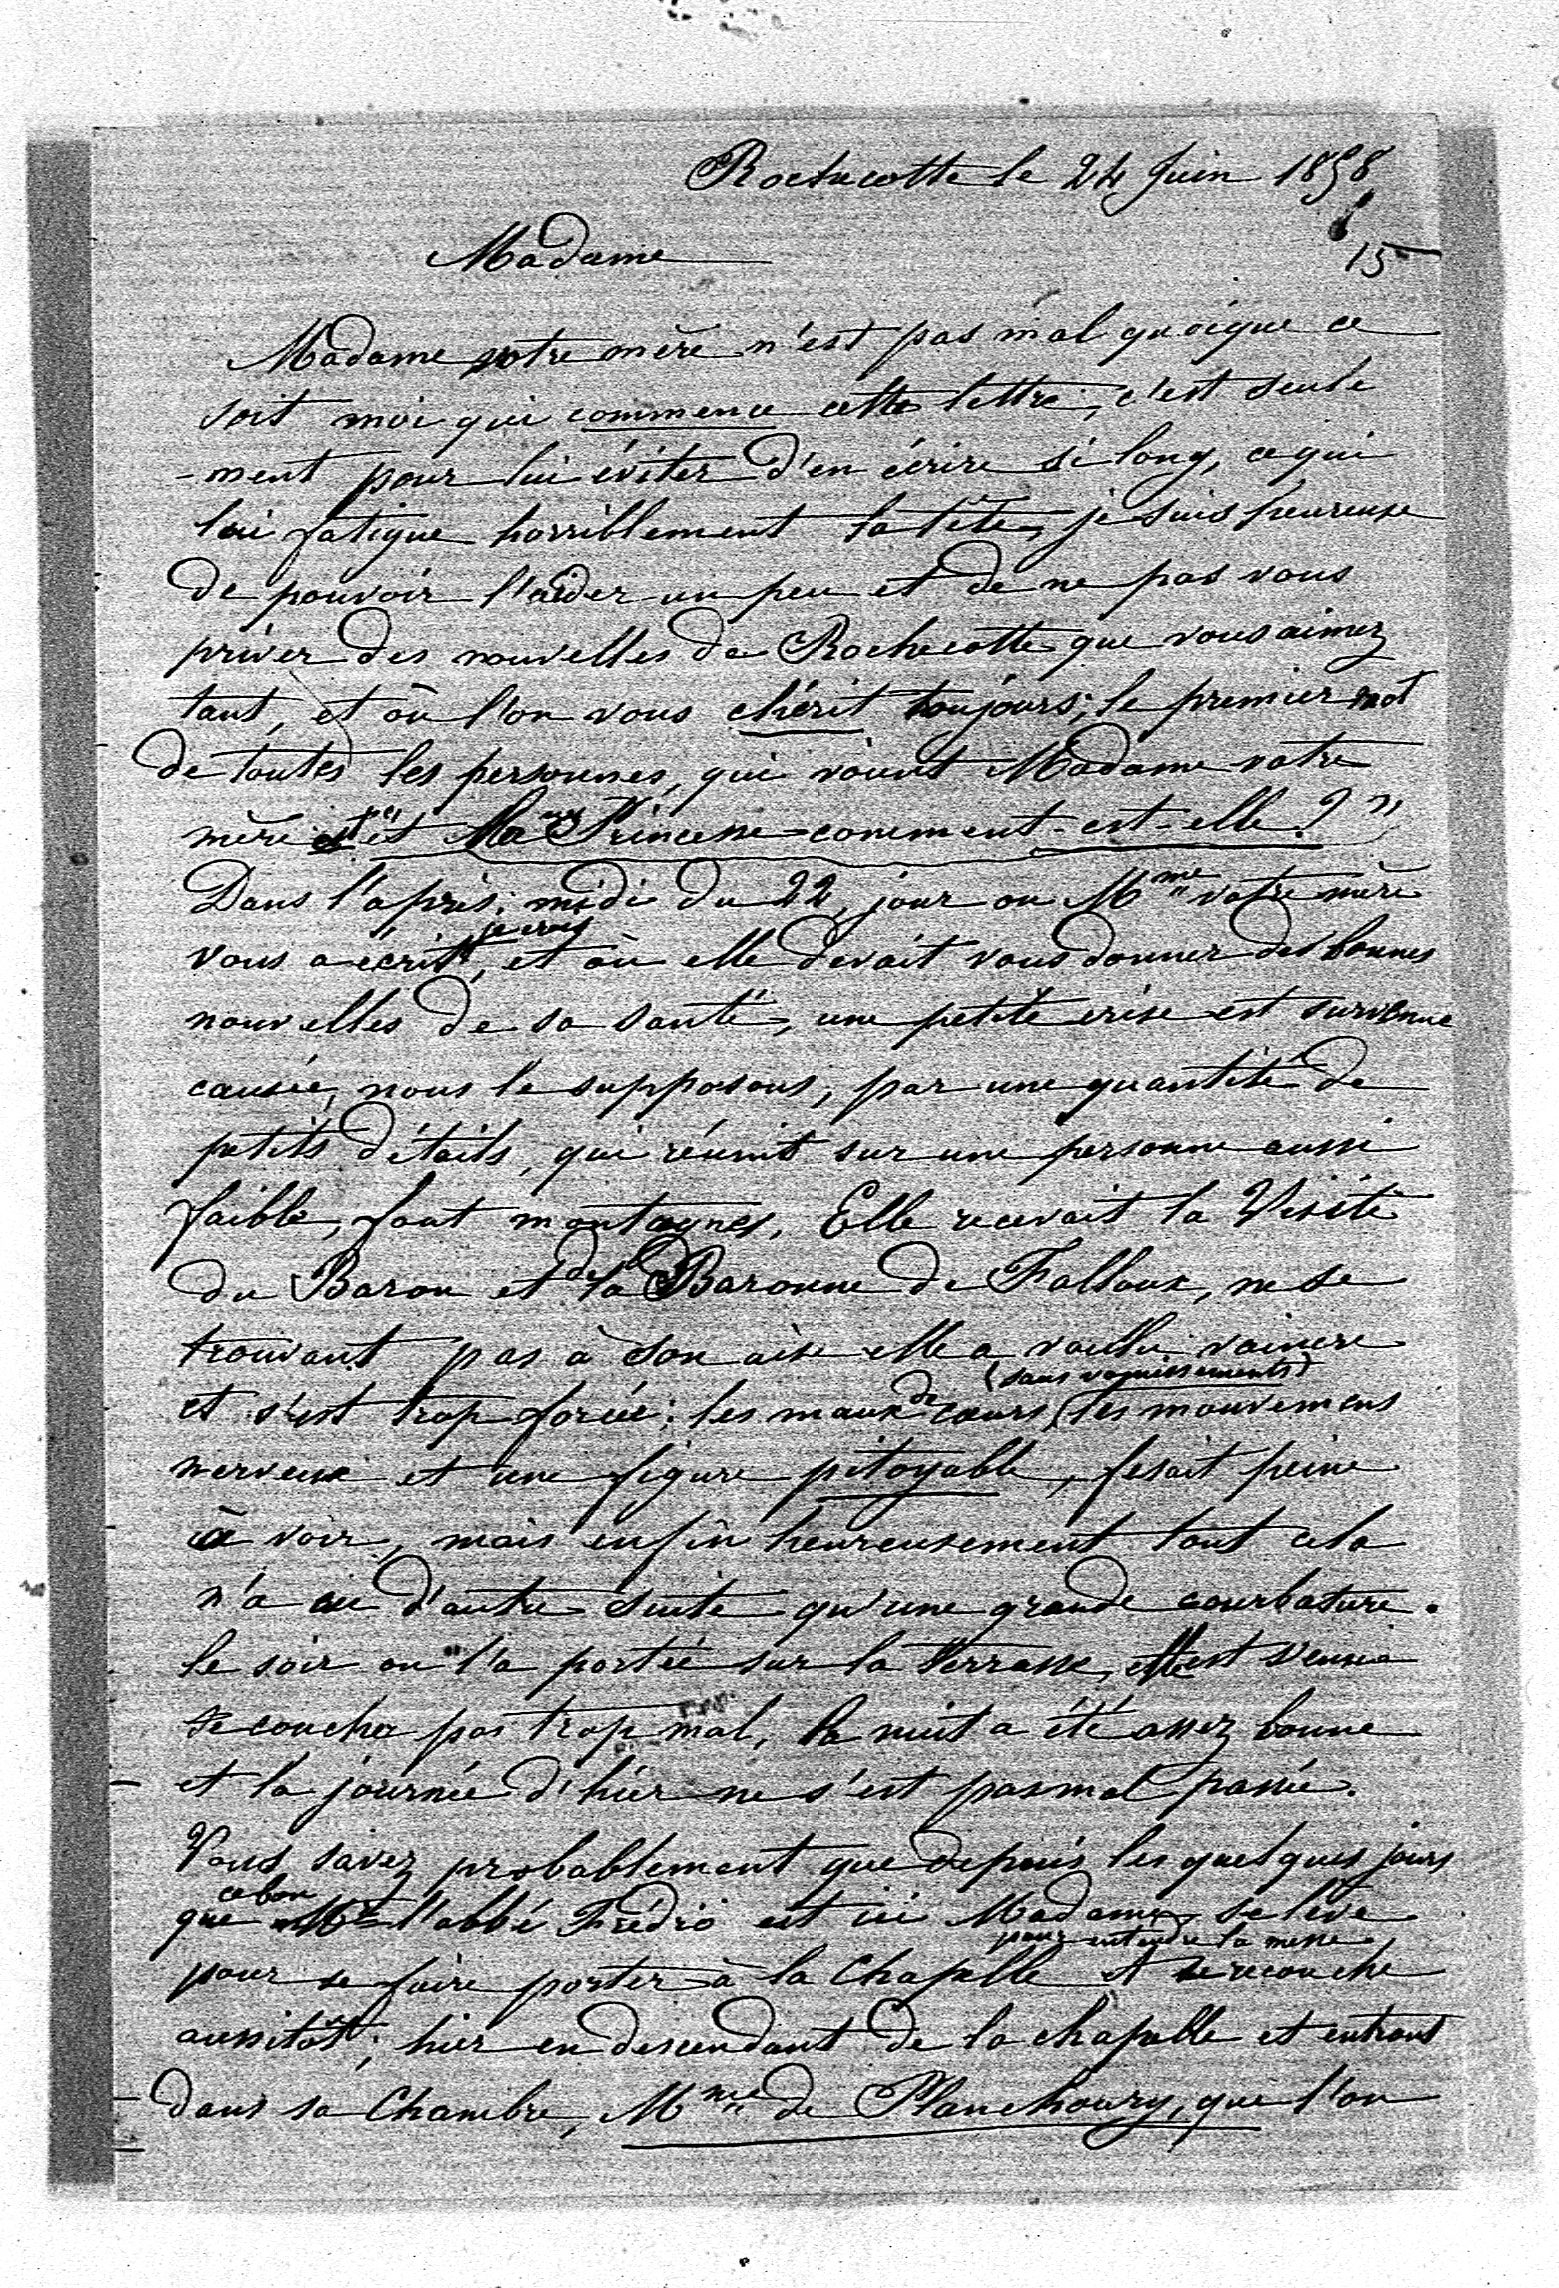 Rochecotte le 24 Juin 1858
15
Madame
Madame votre mère n'est pas mal quoique ce
soit moi qui commence cette lettre, c'est seule
-ment pour lui éviter d'en écrire si long, ce qui
lui fatigue horriblement la tête, je suis heureuse
de pouvoir l'aider un peu et de ne pas vous
priver des nouvelles de Rochecotte que vous aimez
tant, et où l'on vous chérit toujours; le premier mot
de toutes les personnes, qui voient Madame votre
mère est "et la Princesse comment-est-elle? "
Dans l'après-midi du 22, jour ou Mme votre mère
je crois
vous a écrit, et où elle devait vous donner des bonnes
nouvelles de sa santé, une petite crise est survenue
causée, nous le supposons, par une quantité de
petits détails, qui réunit sur une personne aussi
faible, font montagnes. Elle recevait la Visite
du Baron et de la Baronne de Falloux, ne se
trouvant pas à son aise elle a voulu vaincre
(sans vomissements)
et s'est trop forcée; les maux de cœurs, les mouvemens
nerveux et une figure pitoyable, fesait peine
à voir, mais enfin heureusement tout cela
n'a eu d'autre suite qu'une grande courbature.
le soir on l'a portée sur la terrasse, elle est venue
se coucher pas trop mal, la nuit a été assez bonne
et la journée d'hier ne s'est pas mal passée.
Vous savez probablement que depuis les quelques jours
ce bon
que l'abbé Frédro est ici Madame se lève
pour entendre la messe,
pour se faire porter à la Chapelle et se recouche
aussitôt; hier en descendant de la chapelle et entrant
dans sa Chambre, Mme de Planchoury, que l'on